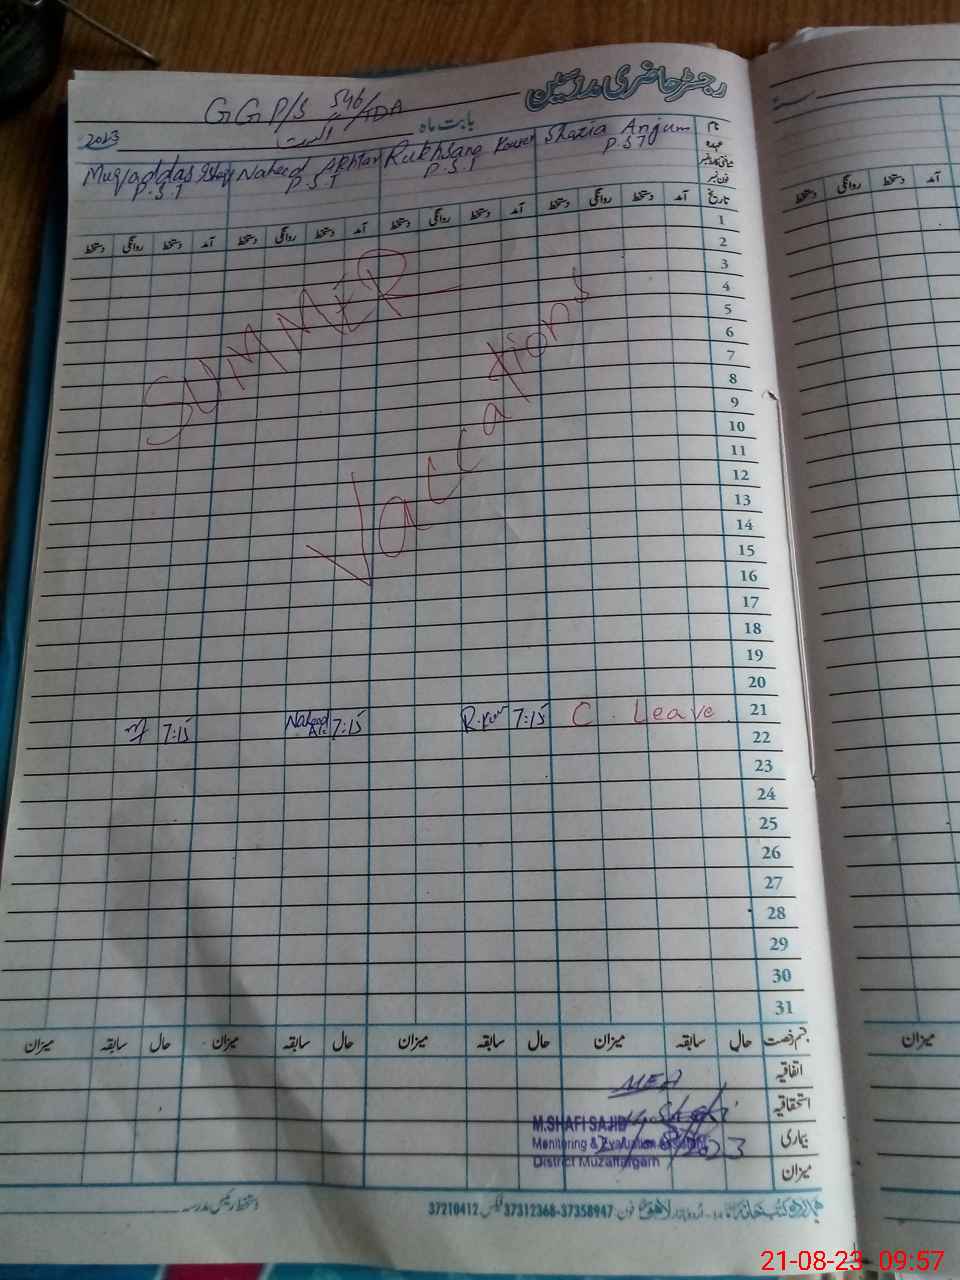 رجسٹر حاضری مدرسین
GGP/S 546/TDA
بابت ماہ اگست 2023
نام Shazia Anjum Rukhsana Kousar Naheed Akhtar Muqaddas
عہدہ P.S.T P.S.T P.S.T P.S.T
فون نمبر
تاریخ آمد دستخط روانگی دستخط آمد دستخط روانگی دستخط آمد دستخط روانگی دستخط آمد دستخط روانگی دستخط
1
2
3
4
5
6
7
8
9
10
11
12
13
14
15
16
17
18
19
20
SUMMER
Vaccations
21 C. Leave 7:15 R.Kour 7:15 Naheed Ak 7:15
22
23
24
25
26
27
28
29
30
31
قسم رخصت حال سابقہ میزان حال سابقہ میزان حال سابقہ میزان حال سابقہ میزان
اتفاقیہ
استحقاقیہ
بیماری
میزان
MEA
M.SHAFI SAJID
Monitoring & Evaluation Assistant
District Muzaffargarh
لاہور فون: 37358947-37312368 فیکس 37210412
دستخط رئیس مدرسہ
دستخط روانگی دستخط آمد
میزان
21-08-23 09:57